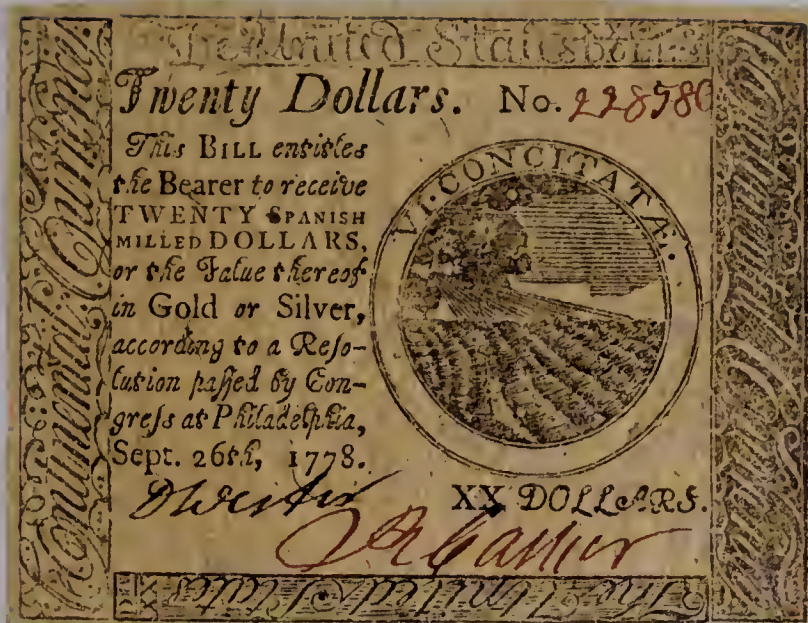 The United States
Twenty Dollars. No. 228580
This BILL entitles
the Bearer to receive
TWENTY SPANISH
MILLED DOLLARS,
or the Value thereof
in Gold or Silver,
according to a Reſo-
lution paſſed by Con-
greſs at Philadelphia,
Sept. 26th, 1778.
VI·CONCITATÆ.
XX DOLLARS.
Continental Currency
Continental Currency
The United States